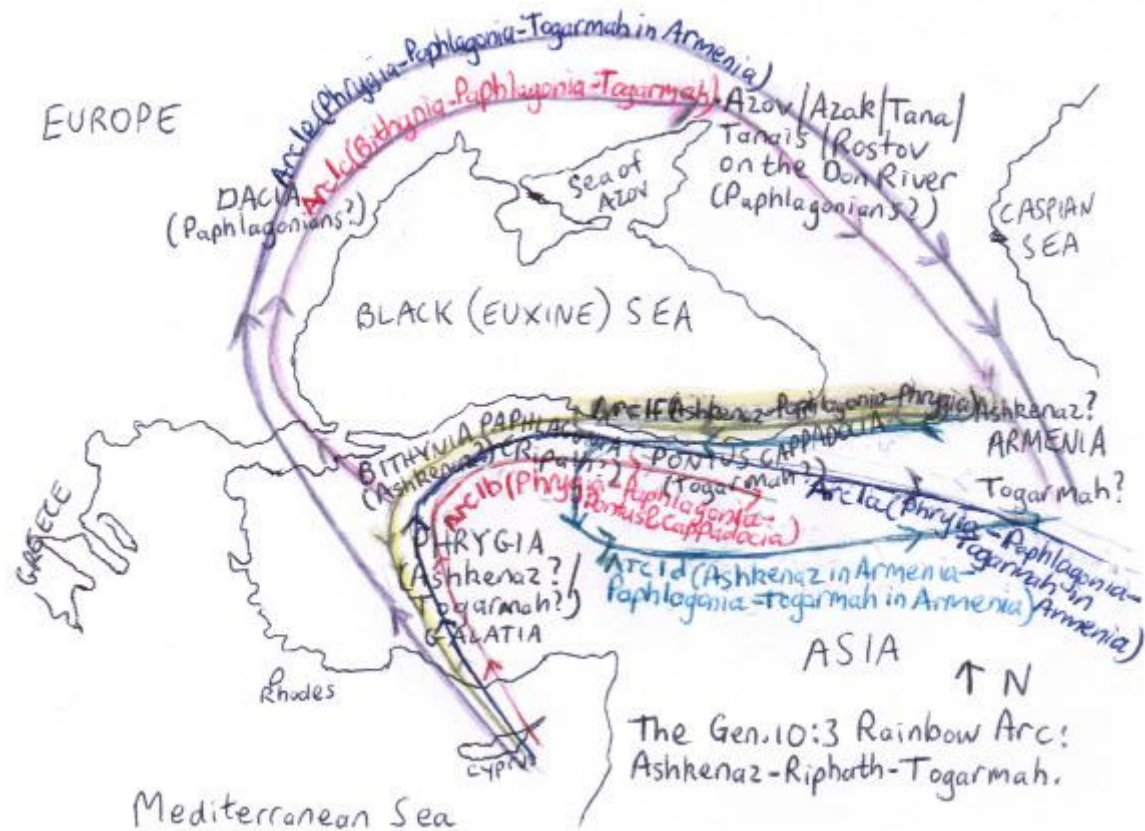 Arc1e(Phrygia-Paphlagonia-Togarmah in Armenia)
Arc1c(Bithynia-Paphlagonia-Togarmah)
EUROPE
DACIA
(Paphlagonians?)
Azov/Azak/Tana/
Tanais/Rostov
on the Don River
(Paphlagonians?)
Sea of
Azov
CASPIAN
SEA
BLACK (EUXINE) SEA
Arc1f(Ashkenaz-Paphlagonia-Phrygia)
Ashkenaz?
ARMENIA
Togarmah?
BITHYNIA
(Ashkenaz?)
PAPHLAGONIA
(Riphath?)
PONTUS CAPPADOCIA
(Togarmah?)
Arc1b(Phrygia-Paphlagonia-
Pontus&Cappadocia)
Arc1a(Phrygia-Paphlagonia-
Togarmah in
Armenia)
GREECE
PHRYGIA
(Ashkenaz?/
Togarmah?)
GALATIA
Arc1d(Ashkenaz in Armenia-
Paphlagonia-Togarmah in Armenia)
ASIA
Rhodes
↑ N
The Gen.10:3 Rainbow Arc:
Ashkenaz-Riphath-Togarmah.
CYPRUS
Mediterranean Sea